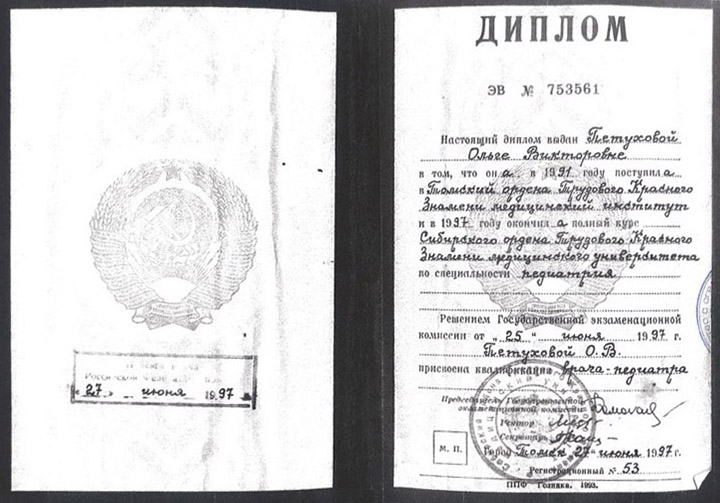 Российской Федерации
"27" июня 1997
ДИПЛОМ
ЭВ № 753561
Настоящий диплом выдан Петуховой
Ольге Викторовне
в том, что она в 1991 году поступила
в Томский ордена Трудового Красного
Знамени медицинский институт
и в 1997 году окончила полный курс
Сибирского ордена Трудового Красного
Знамени медицинского университета
по специальности педиатрия
Решением Государственной экзаменационной
комиссии от "25" июня 1997 г.
Петуховой О.В.
присвоена квалификация врача-педиатра
Председатель Государственной
экзаменационной комиссии
Ректор
Секретарь
М. П.
Город Томск 27 июня 1997 г.
Регистрационный № 53
ППФ Гознака. 1993.